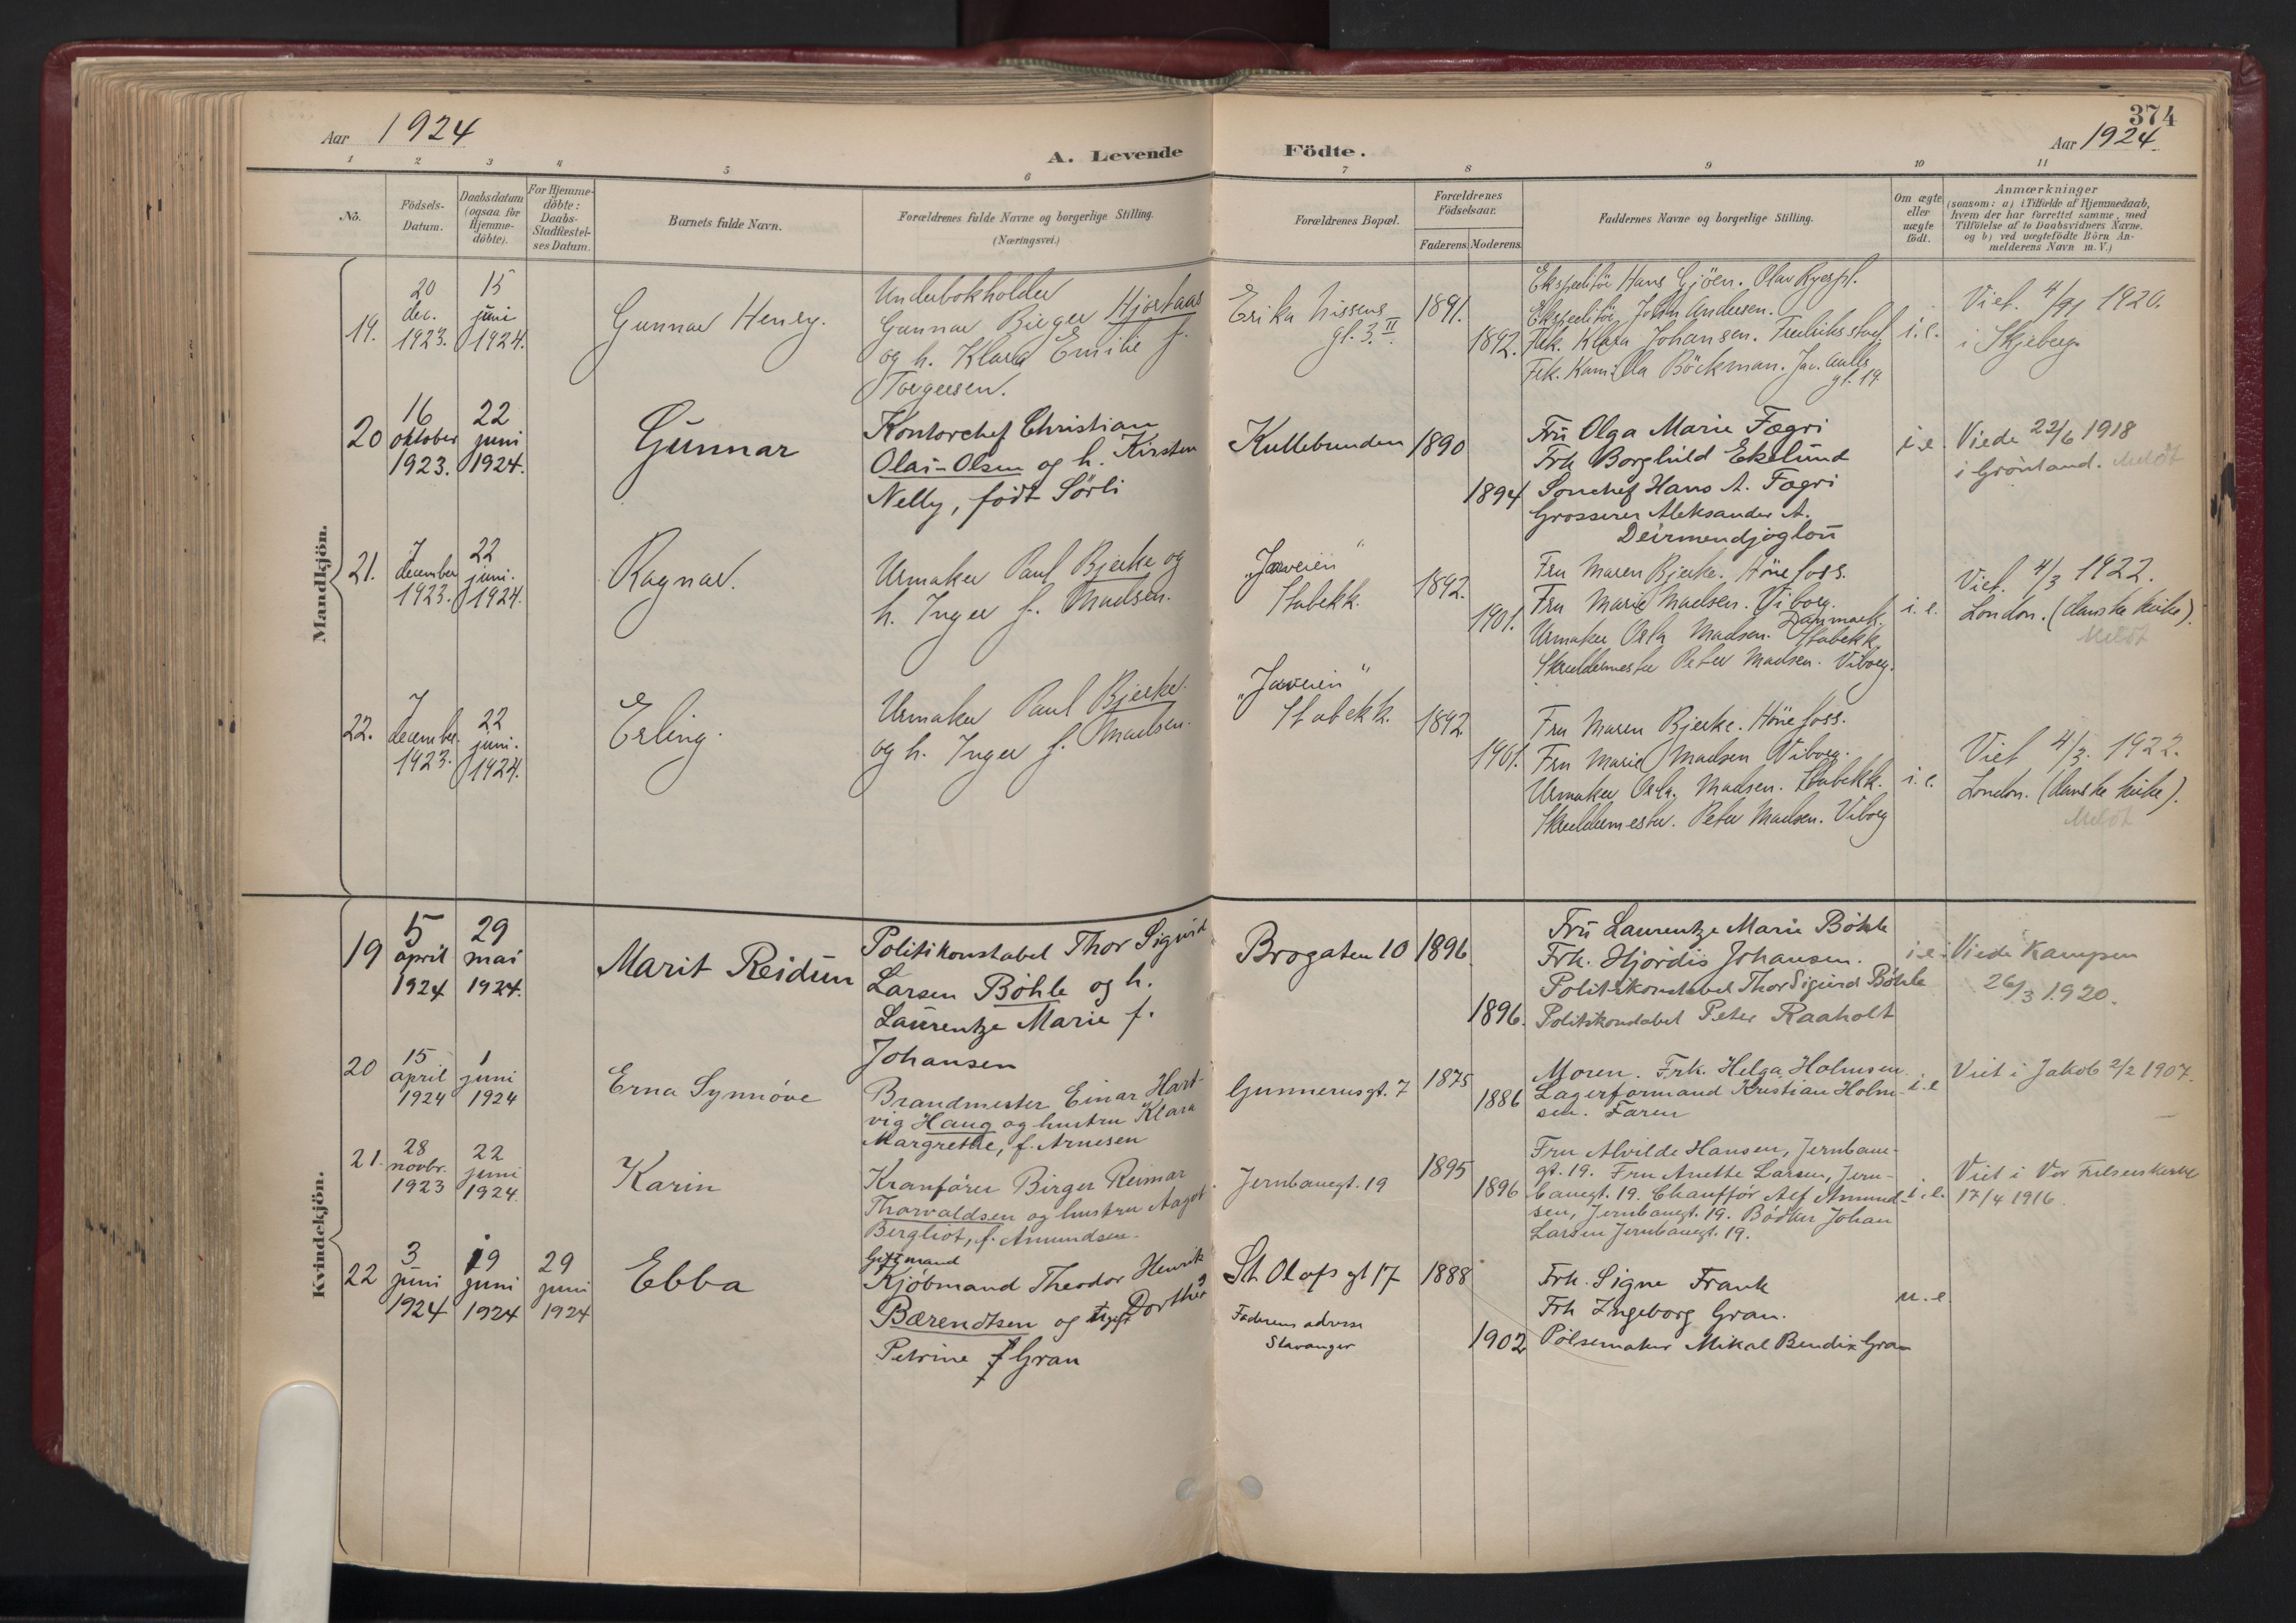 374
Aar 1924
Aar 1924.
A. Levende Födte.
1 2 3 4 5 6 7 8 9 10 11
No.
Födsels-
Datum.
Daabsdatum
(ogsaa for
Hjemme-
döbte).
For Hjemme-
döbte:
Daabs-
Stadfæstel-
ses Datum.
Barnets fulde Navn.
Forældrenes fulde Navne og borgerlige Stilling.
(Næringsvei.)
Forældrenes Bopæl.
Forældrenes
Födselsaar.
Faderens. Moderens.
Faddernes Navne og borgerlige Stilling.
Om ægte
eller
uægte
födt.
Anmærkninger
(saasom: a) i Tilfælde af Hjemmedaab,
hvem der har forrettet samme, med
Tilföielse af to Daabsvidners Navne,
og b) ved uægtefödte Börn An-
melderens Navn m. V.)
Mandkjön.
19.
20
dec.
1923.
15
juni
1924.
Gunnar Henry.
Underbokholder
Gunnar Birger Hjortaas
og h. Klara Emilie f.
Torgersen.
Erika Nissens
gt. 3 II.
1891.
1892.
Ekspeditör Hans Gjöen. Olav Ryes pl.
Ekspeditör John Andersen.
Frk. Klara Johansen. Fredriksstad
Frk. Kamilla Böckman. Jac. Aalls
gt. 19
i. e.
Viet. 1920.
i Skjeberg.
20
16
oktober
1923.
22
juni
1924.
Gunnar
Kontorchef Christian
Olai-Olsen og h. Kirsten
Nelly, født Sørli
Kullebunden
1890
1894
Fru Olga Marie Fægri
Frk Borghild Ekelund
Hans A. Fægri
Grosserer Aleksander A.
Deirmendjoglou
i e.
Viede 22/6 1918
i Grönland. Meldt
21.
7
december
1923.
22
juni.
1924.
Ragnar.
Urmaker Paul Bjerke og
h. Inger f. Madsen.
"Javeien"
Stabekk.
1892.
1901.
Fru Maren Bjerke. Hönefoss.
Fru Marie Madsen. Viborg.
Danmark.
Urmaker Orla Madsen. Stabekk
Skræddermester Peter Madsen. Viborg.
i. e.
Viet. 4/3 1922.
London. (danske kirke).
Meldt
22.
7
december.
1923.
22
juni.
1924.
Erling.
Urmaker Paul Bjerke
og h. Inger f. Madsen.
"Javeien"
Stabekk.
1892
1901.
Fru Maren Bjerke. Hönefoss.
Fru Marie Madsen Viborg.
Urmaker Orla. Madsen. Stabekk.
Skræddermester. Peter Madsen. Viborg
i. e.
Viet 4/3. 1922.
London. (danske kirke).
Meldt
Kvindekjön.
19
5
april
1924
29
mai
1924.
Marit Reidun
Politikonstabel Thor Sigurd
Larsen Bøhle og h.
Laurentze Marie f.
Johansen
Brogaten 10
1896
1896.
Fru Laurentze Marie Bøhle
Frk. Hjørdis Johansen.
Politikonstabel Thor Sigurd Bøhle
Politikonstabel Peter Raaholt
i e.
Viede Kampen
26/3 1920.
20
15
april
1924
1
juni
1924
Erna Synnöve
Brandmester Einar Hart-
vig Haug og hustru Klara
Margrethe, f. Arnesen
Gunnerusgt. 7
1875
1886
Moren. Frk. Helga Holmsen.
Lagerformand Kristian Holm-
sen. Faren
i. e
Viet i Jakob 2/2 1907.
21.
28
novbr.
1923
22
juni
1924.
Karin
Kranförer Birger Reimar
Thorvaldsen og hustru Aagot
Bergliot, f. Amundsen.
Jernbanegt. 19
1895
1896
Fru Alvilde Hansen, Jernbane-
gt. 19. Fru Anette Larsen, Jern-
banegt. 19. Chauffør Alf Amund-
sen, Jernbanegt. 19. Bödker Johan
Larsen Jernbanegt. 19.
i. e.
Viet i Vor Frelsers kirke
17/4 1916.
22
3
juni
1924
19
juni
1924
29
juni
1924
Ebba
Gift mand
Kjöbmand Theodor Henrik
Bærendtsen og Dorthea
Petrine Gran
St Olafs gt 17
Faderens adresse
Stavanger
1888
1902
Frk. Signe Frank
Frk Ingeborg Gran.
Pölsemaker Mikal Bendix Gran
u. e.